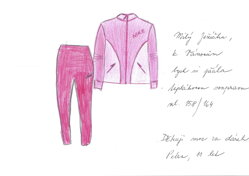 NIKE
Milý Ježíšku,
k Vánocům
bych si přála
teplákovou soupravu
vel 158/164
Děkuji moc za dárek
Petra, 11 let